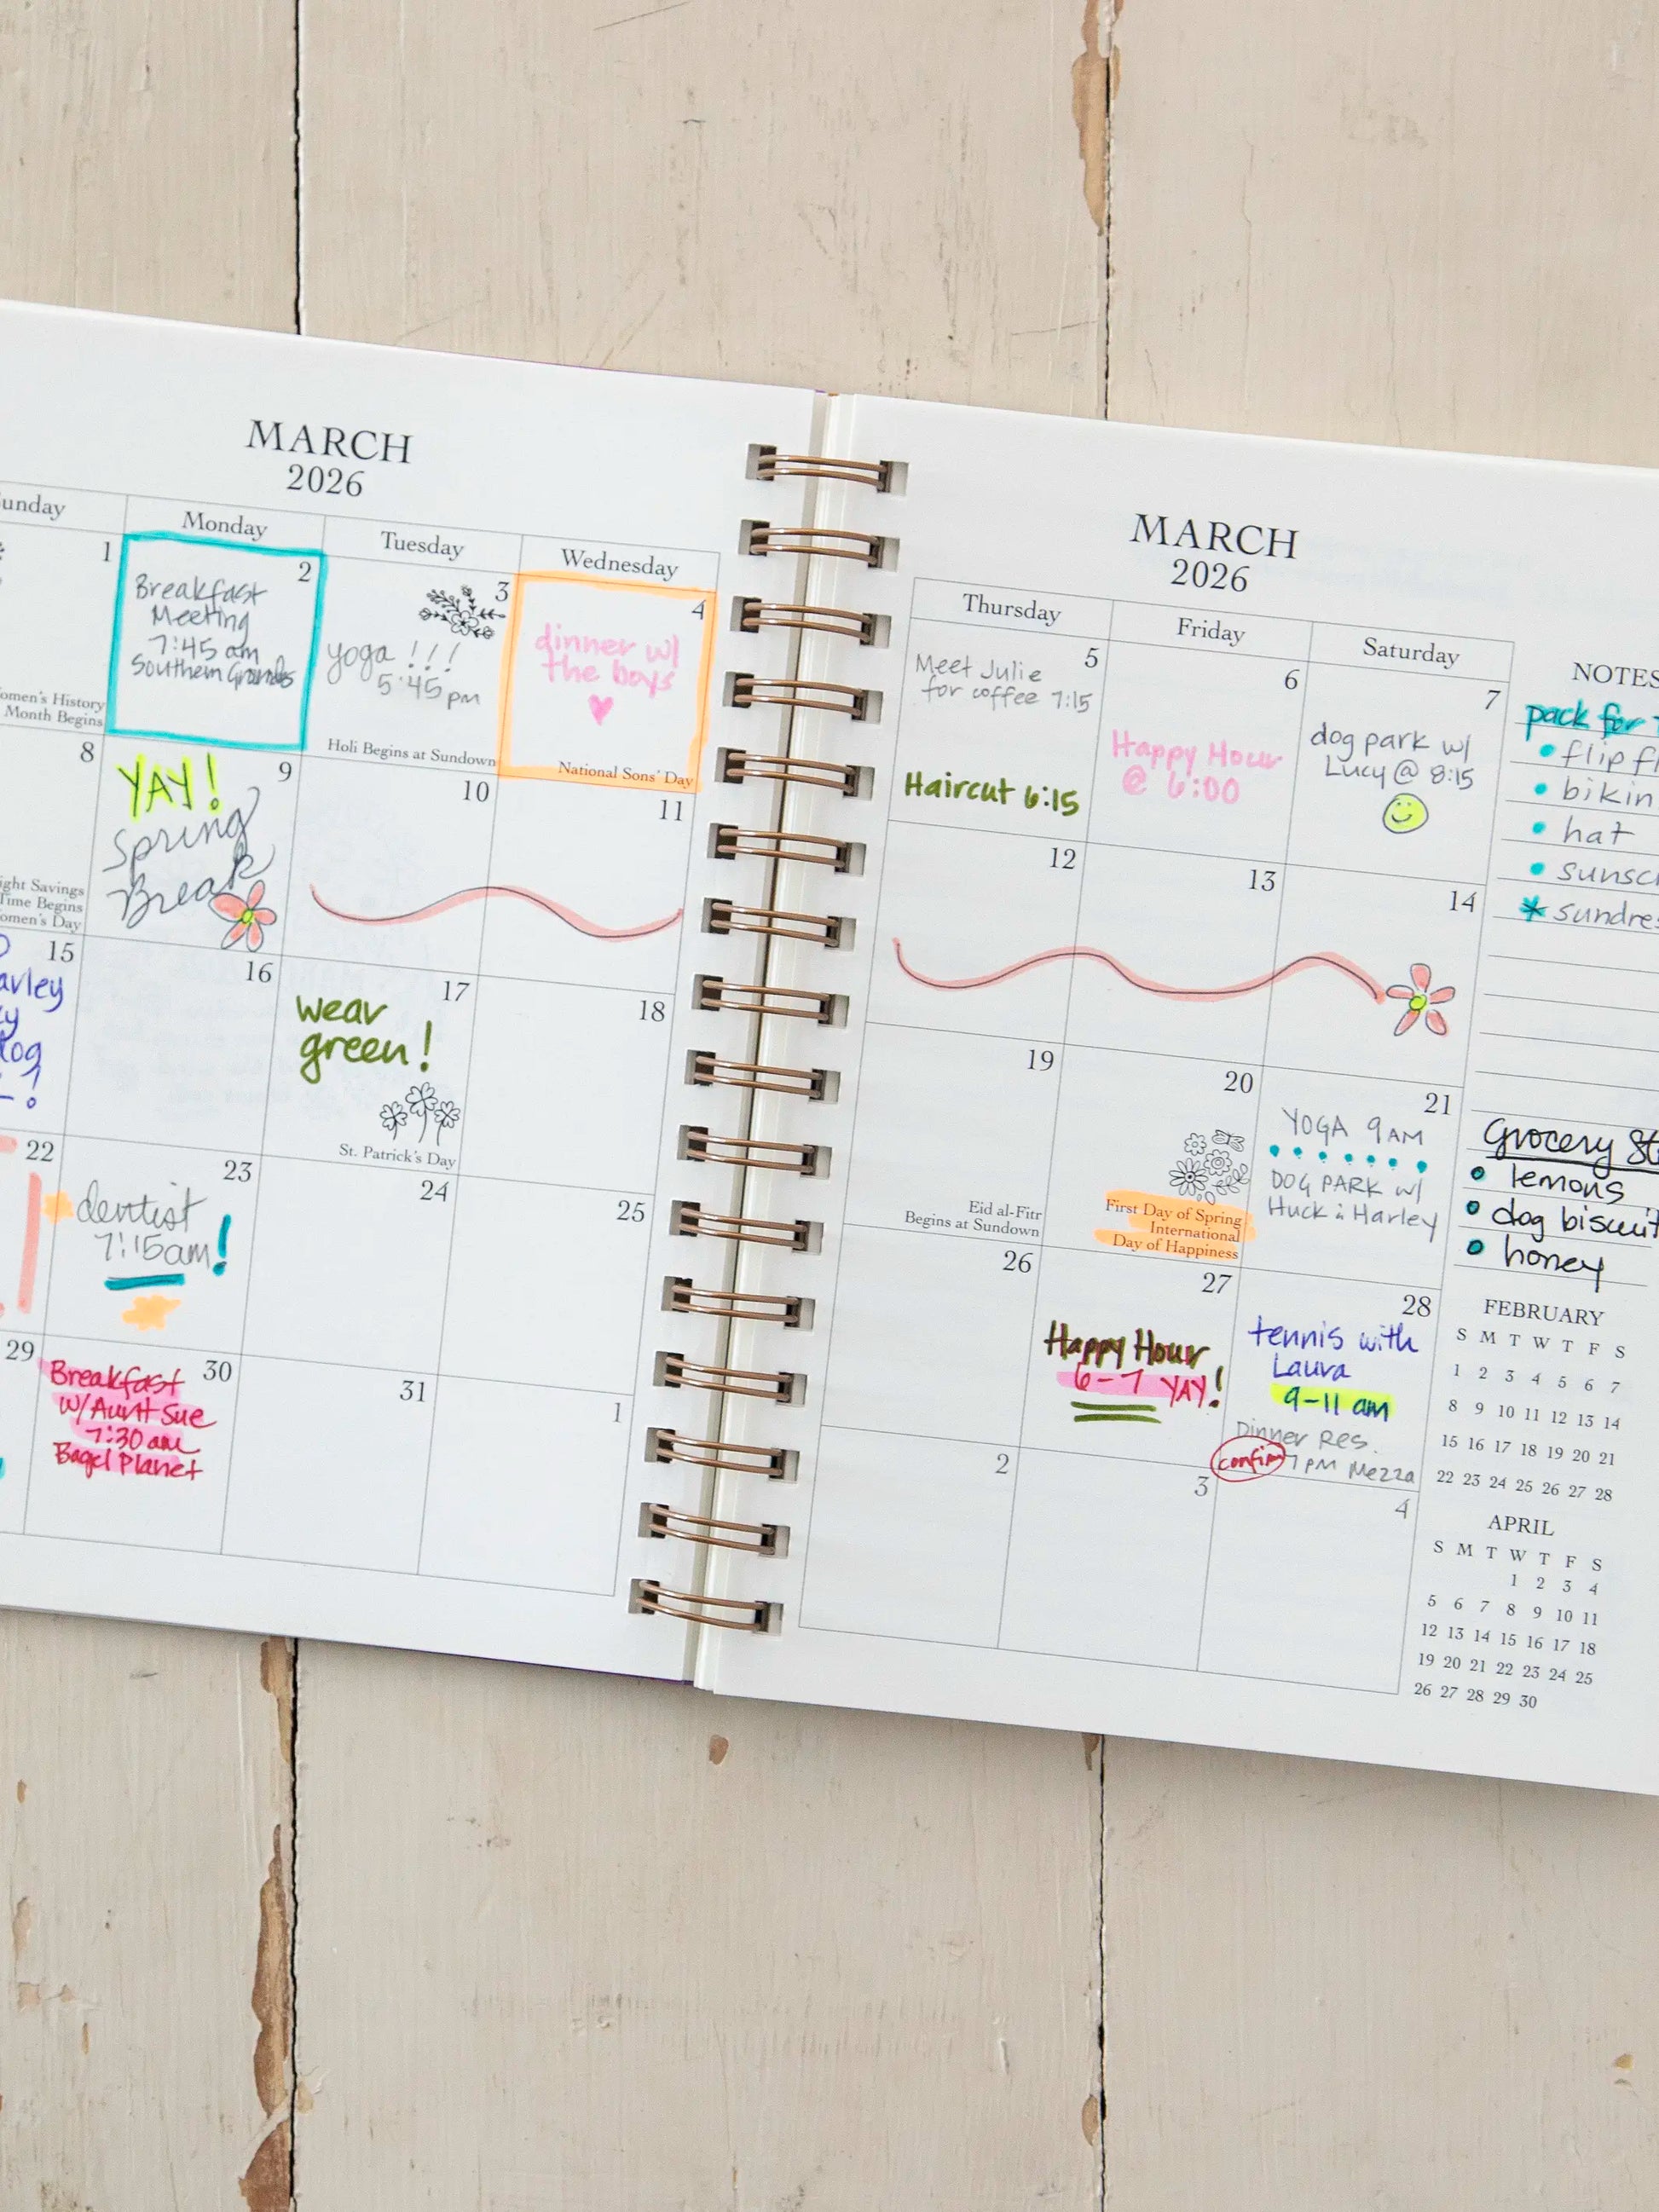 MARCH
2026
Monday
Tuesday
Wednesday
1
Month Begins
2
Breakfast
Meeting
7:45 am
Southern Grounds
3
yoga !!!
5:45 pm
Holi Begins at Sundown
4
dinner w/
the boys
National Sons' Day
8
Savings
Time Begins
Day
9
YAY!
Spring
Break
10
11
15
16
17
wear
green!
St. Patrick's Day
18
22
23
dentist
7:15am!
24
25
29
30
Breakfast
w/Aunt Sue
7:30 am
Bagel Planet
31
1
MARCH
2026
Thursday
Friday
Saturday
5
Meet Julie
for coffee 7:15
Haircut 6:15
6
Happy Hour
@ 6:00
7
dog park w/
Lucy @ 8:15
12
13
14
19
Eid al-Fitr
Begins at Sundown
20
First Day of Spring
International
Day of Happiness
21
YOGA 9AM
DOG PARK w/
Huck & Harley
26
27
Happy Hour
6-7 YAY!
28
tennis with
Laura
9-11 am
Dinner Res.
confirm 7 PM Mezza
2
3
4
NOTES
pack for
hat
Grocery
lemons
dog
honey
FEBRUARY
S M T W T F S
1 2 3 4 5 6 7
8 9 10 11 12 13 14
15 16 17 18 19 20 21
22 23 24 25 26 27 28
APRIL
S M T W T F S
1 2 3 4
5 6 7 8 9 10 11
12 13 14 15 16 17 18
19 20 21 22 23 24 25
26 27 28 29 30